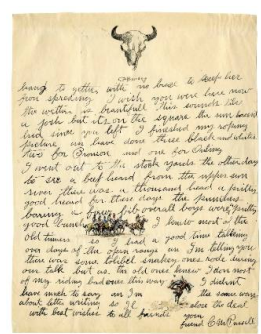 band to gether with no hoop to keep her
from spreding I wish you were here now
the wether is beautifull This sounds like
a josh but its on the square the sun
since you left I finished my roping
picture an have done three black and whites
two for Bronson and one for Cheney
I went out to the stock yards the other day
to see a beef heard from the upper sun
river there was a thousand head a pritty
good heard for these days the punchers
baring a bib overalls were pritty
good bunch I knew most of the
old timers so I had a good time talking
over days of the open range an Im telling you
there was some tolibel snakey ones rode during
our talk but us old ones knew I don most
of my riding and once this way I didn't
have much to say an Im the same way
about letter writing close the deal
with best wishes to all friends your
friend C M Russell